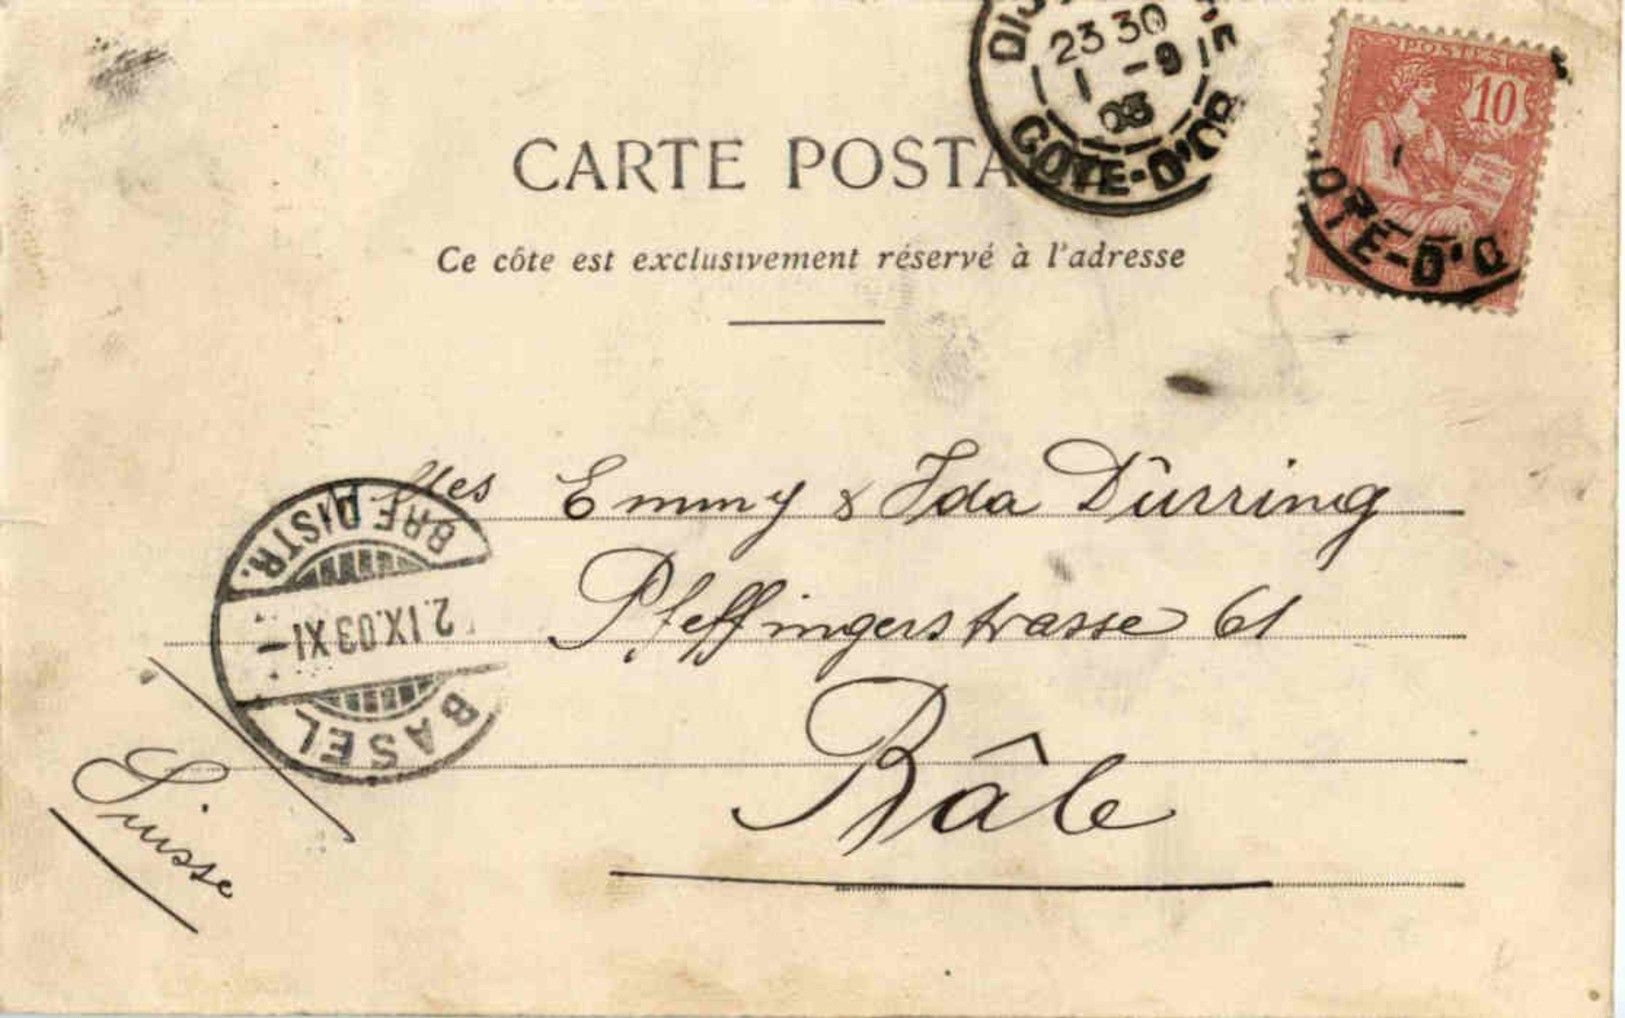 POSTES
10
23 30
1 -9
03
COTE-D'OR
CARTE POSTA
Ce côte est exclusivement réservé à l'adresse
OTE-D'O
Mlles Emmy & Ida Dûrring
Pfeffingerstrasse 61
Bâle
Suisse
BASEL
2.IX.03 XI-
BRF.DISTR.